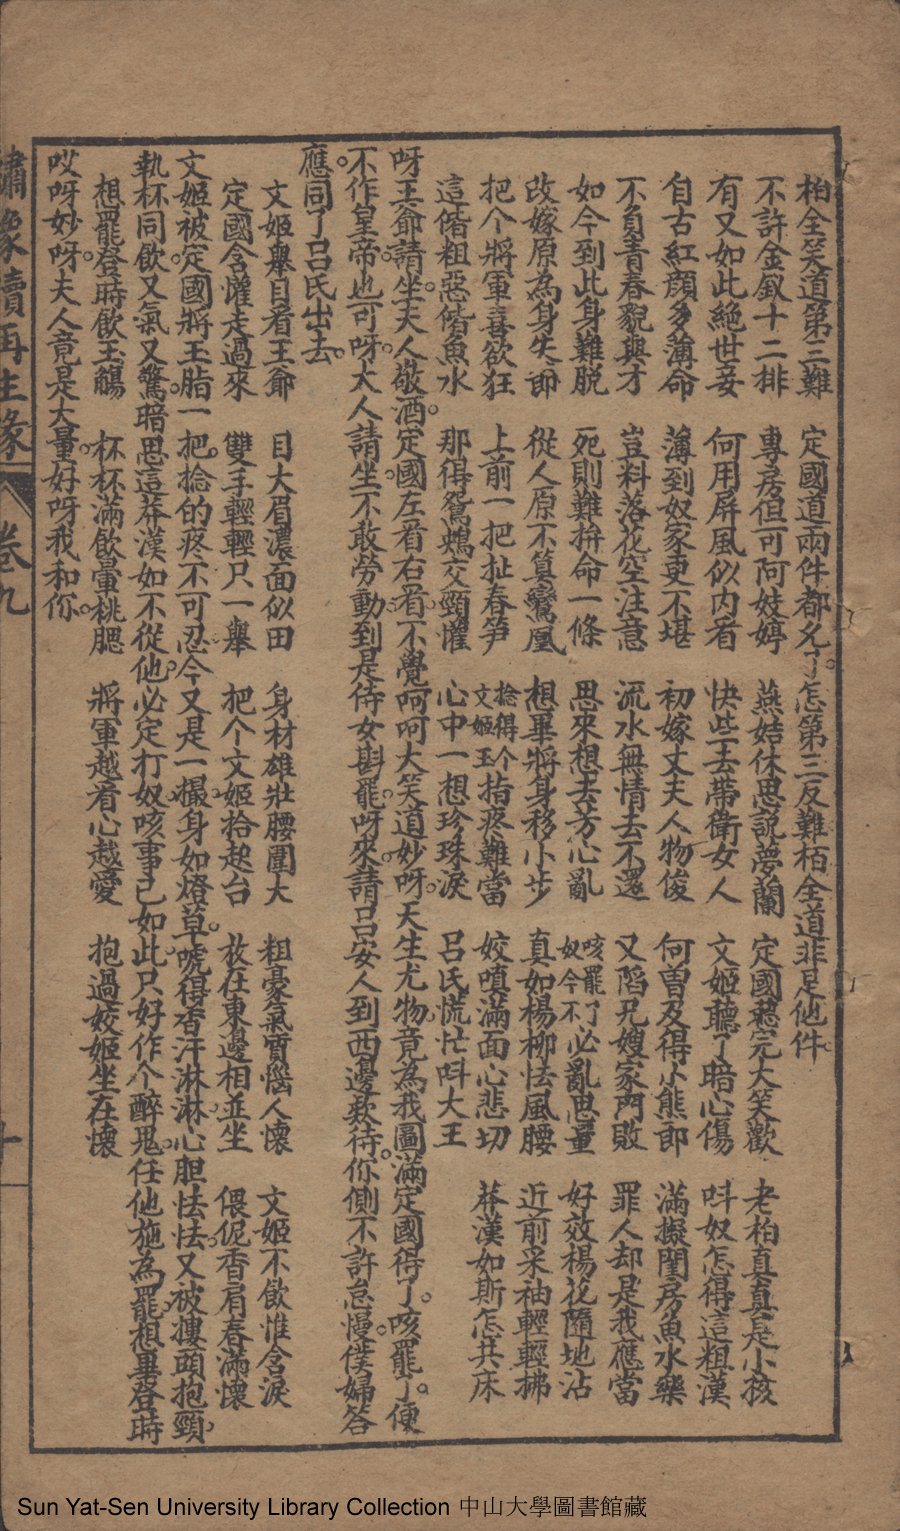 柏全笑道第三難　定國道兩件都允了。怎第三反難栢全道非是他件。
不許金釵十二排　專房但可阿妓婷　燕姞休思說夢蘭　定國聽完大笑歡　老柏真真是小孩
有又如此絕世妾　何用屏風似内看　快些去帶衛女人　文姬聽了暗心傷　呌奴怎得這粗漢
自古紅顏多薄命　薄到奴家更不堪　初嫁丈夫人物俊　何曽及得小熊郎　滿擬閨房魚水樂
不負青春貌與才　豈料落花空注意　流水無情去不還　又陷兄嫂家門敗　罪人却是我應當
如今到此身難脫　死則難拚命一條　思來想去芳心亂　咳罷了奴今不必亂思量　好效楊花隨地沾
改嫁原為身失節　從人原不算鸞凰　想畢將身移小步　真如楊柳怯風腰　近前采袖輕輕拂
把个將軍喜欲狂　上前一把扯春笋　捻得个文姬玉指疼難當　姣嗔滿面心悲切　莽漢如斯怎共床
這偺粗惡偺魚水　那得鴛鴆交頸懽　心中一想珍珠淚　呂氏慌忙呌大王
呀王爺請坐。夫人敬酒。定國左看右看不覺呵呵大笑道妙呀。天生尤物。竟為我圖滿定國得了。咳罷了。便
不作皇帝。也可呀。大人請坐。不敢勞動。到是侍女斟罷。呀來。請呂安人到西邊欵待。你側不許怠慢。僕婦答
應。同了呂氏出去。
文姬舉目看王爺　目大眉濃面似田　身材雄壯腰圍大　粗豪氣質惱人懷　文姬不飲惟含淚
定國含懽走過來　雙手輕輕只一舉　把个文姬拾起台　放在東邊相並坐　偎伲香肩春滿懷
文姬被定國將玉脂一把。捻的疼不可忍。今又是一撮。身如燈草。唬得香汗淋淋。心胆怯怯。又被摟頭抱頸。
執杯同飲。又氣又驚。暗思這莽漢如不從他。必定打奴。咳事已如此。只好作个醉鬼。任他施為罷。想畢登時
想罷登時飲玉觴　杯杯滿飲暈桃腮　將軍越看心越愛　抱過姣姬坐在懷
哎呀妙呀。夫人竟是大量。好呀。我和你。
繡像續再生緣　卷九　十
Sun Yat-Sen University Library Collection 中山大學圖書館藏